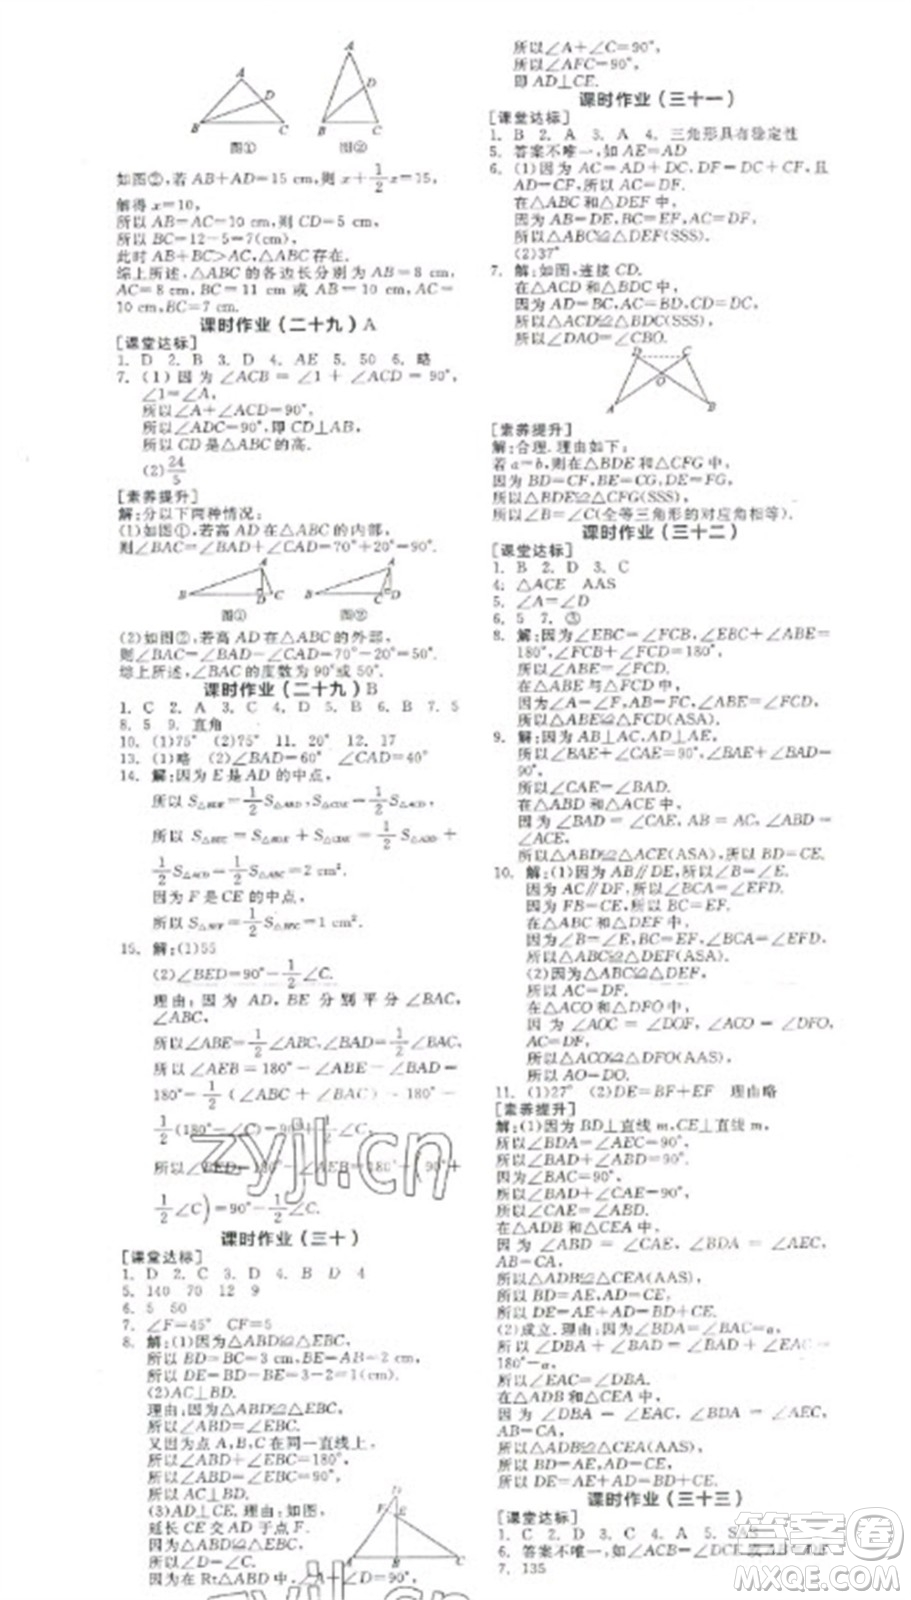 A
D
B
C
图①
A
D
B
C
图②
如图②,若 AB+AD=15 cm,则 x+1/2x=15,
解得 x=10,
所以 AB=AC=10 cm,则 CD=5 cm,
所以 BC=12-5=7(cm),
此时 AB+BC>AC,△ABC 存在.
综上所述,△ABC 的各边长分别为 AB=8 cm,
AC=8 cm,BC=11 cm 或 AB=10 cm,AC=
10 cm,BC=7 cm.
课时作业(二十九)A
[课堂达标]
1. D 2. B 3. D 4. AE 5. 50 6. 略
7. (1)因为∠ACB=∠1+∠ACD=90°,
∠1=∠A,
所以∠A+∠ACD=90°,
所以∠ADC=90°,即 CD⊥AB,
所以 CD 是△ABC 的高.
(2)24/5
[素养提升]
解:分以下两种情况:
(1)如图①,若高 AD 在△ABC 的内部,
则∠BAC=∠BAD+∠CAD=70°+20°=90°;
A
B
D
C
图①
A
B
C
D
图②
(2)如图②,若高 AD 在△ABC 的外部,
则∠BAC=∠BAD-∠CAD=70°-20°=50°.
综上所述,∠BAC 的度数为 90°或 50°.
课时作业(二十九)B
1. C 2. A 3. C 4. D 5. B 6. B 7. 5
8. 5 9. 直角
10. (1)75° (2)75° 11. 20° 12. 17
13. (1)略 (2)∠BAD=60° ∠CAD=40°
14. 解:因为 E 是 AD 的中点,
所以 S△BDE=1/2S△ABD,S△CDE=1/2S△ACD,
所以 S△BEC=S△BDE+S△CDE=1/2S△ABD+
1/2S△ACD=1/2S△ABC=2 cm².
因为 F 是 CE 的中点,
所以 S△BEF=1/2S△BEC=1 cm².
15. 解:(1)55
(2)∠BED=90°-1/2∠C.
理由:因为 AD,BE 分别平分∠BAC,
∠ABC,
所以∠ABE=1/2∠ABC,∠BAD=1/2∠BAC,
所以∠AEB=180°-∠ABE-∠BAD=
180°-1/2(∠ABC+∠BAC)=180°-
1/2(180°-∠C)=90°+1/2∠C,
所以∠BED=180°-∠AEB=180°-(90°+
1/2∠C)=90°-1/2∠C.
课时作业(三十)
[课堂达标]
1. D 2. C 3. D 4. B D 4
5. 140 70 12 9
6. 5 50
7. ∠F=45° CF=5
8. 解:(1)因为△ABD≌△EBC,
所以 BD=BC=3 cm,BE=AB=2 cm,
所以 DE=BD-BE=3-2=1(cm).
(2)AC⊥BD.
理由:因为△ABD≌△EBC,
所以∠ABD=∠EBC.
又因为点 A,B,C 在同一直线上,
所以∠ABD+∠EBC=180°,
所以∠ABD=∠EBC=90°,
所以 AC⊥BD.
(3)AD⊥CE.理由:如图,
延长 CE 交 AD 于点 F.
因为△ABD≌△EBC,
所以∠D=∠C.
因为在 Rt△ABD 中,
D
F
E
A
B
C
所以∠A+∠C=90°,
所以∠AFC=90°,
即 AD⊥CE.
课时作业(三十一)
[课堂达标]
1. B 2. A 3. A 4. 三角形具有稳定性
5. 答案不唯一,如 AE=AD
6. (1)因为 AC=AD+DC,DF=DC+CF,且
AD=CF,所以 AC=DF.
在△ABC 和△DEF 中,
因为 AB=DE,BC=EF,AC=DF,
所以△ABC≌△DEF(SSS).
(2)37°
7. 解:如图,连接 CD.
在△ACD 和△BDC 中,
因为 AD=BC,AC=BD,CD=DC,
所以△ACD≌△BDC(SSS),
所以∠DAO=∠CBO.
D
C
O
A
B
[素养提升]
解:合理.理由如下:
若 a=b,则在△BDE 和△CFG 中,
因为 BD=CF,BE=CG,DE=FG,
所以△BDE≌△CFG(SSS),
所以∠B=∠C(全等三角形的对应角相等).
课时作业(三十二)
[课堂达标]
1. B 2. D 3. C
4. △ACE AAS
5. ∠A=∠D
6. 5 7. ③
8. 解:因为∠EBC=∠FCB,∠EBC+∠ABE=
180°,∠FCB+∠FCD=180°,
所以∠ABE=∠FCD.
在△ABE 与△FCD 中,
因为∠A=∠F,AB=FC,∠ABE=∠FCD,
所以△ABE≌△FCD(ASA).
9. 解:因为 AB⊥AC,AD⊥AE,
所以∠BAE+∠CAE=90°,∠BAE+
∠BAD=90°,
所以∠CAE=∠BAD.
在△ABD 和△ACE 中,
因为∠BAD=∠CAE,AB=AC,∠ABD=
∠ACE,
所以△ABD≌△ACE(ASA),所以 BD=CE.
10. 解:(1)因为 AB∥DE,所以∠B=∠E.
因为 AC∥DF,所以∠BCA=∠EFD.
因为 FB=CE,所以 BC=EF.
在△ABC 和△DEF 中,
因为∠B=∠E,BC=EF,∠BCA=∠EFD,
所以△ABC≌△DEF(ASA).
(2)因为△ABC≌△DEF,
所以 AC=DF.
在△ACO 和△DFO 中,
因为∠AOC=∠DOF,∠ACO=∠DFO,
AC=DF,
所以△ACO≌△DFO(AAS),
所以 AO=DO.
11. (1)27° (2)DE=BF+EF 理由略
[素养提升]
解:(1)因为 BD⊥直线 m,CE⊥直线 m,
所以∠BDA=∠AEC=90°,
所以∠BAD+∠ABD=90°.
因为∠BAC=90°,
所以∠BAD+∠CAE=90°,
所以∠CAE=∠ABD.
在△ADB 和△CEA 中,
因为∠ABD=∠CAE,∠BDA=∠AEC,
AB=CA,
所以△ADB≌△CEA(AAS),
所以 BD=AE,AD=CE,
所以 DE=AE+AD=BD+CE.
(2)成立.理由:因为∠BDA=∠BAC=α,
所以∠DBA+∠BAD=∠BAD+∠CAE=
180°-α,
所以∠CAE=∠DBA.
在△ADB 和△CEA 中,
因为∠DBA=∠EAC,∠BDA=∠AEC,
AB=CA,
所以△ADB≌△CEA(AAS),
所以 BD=AE,AD=CE,
所以 DE=AE+AD=BD+CE.
课时作业(三十三)
[课堂达标]
1. C 2. D 3. C 4. A 5. SAS
6. 答案不唯一,如∠ACB=∠DCE 或 AB=DE
7. 135
zyjl.cn
zyjl.cn
答案圈
MXQE.COM